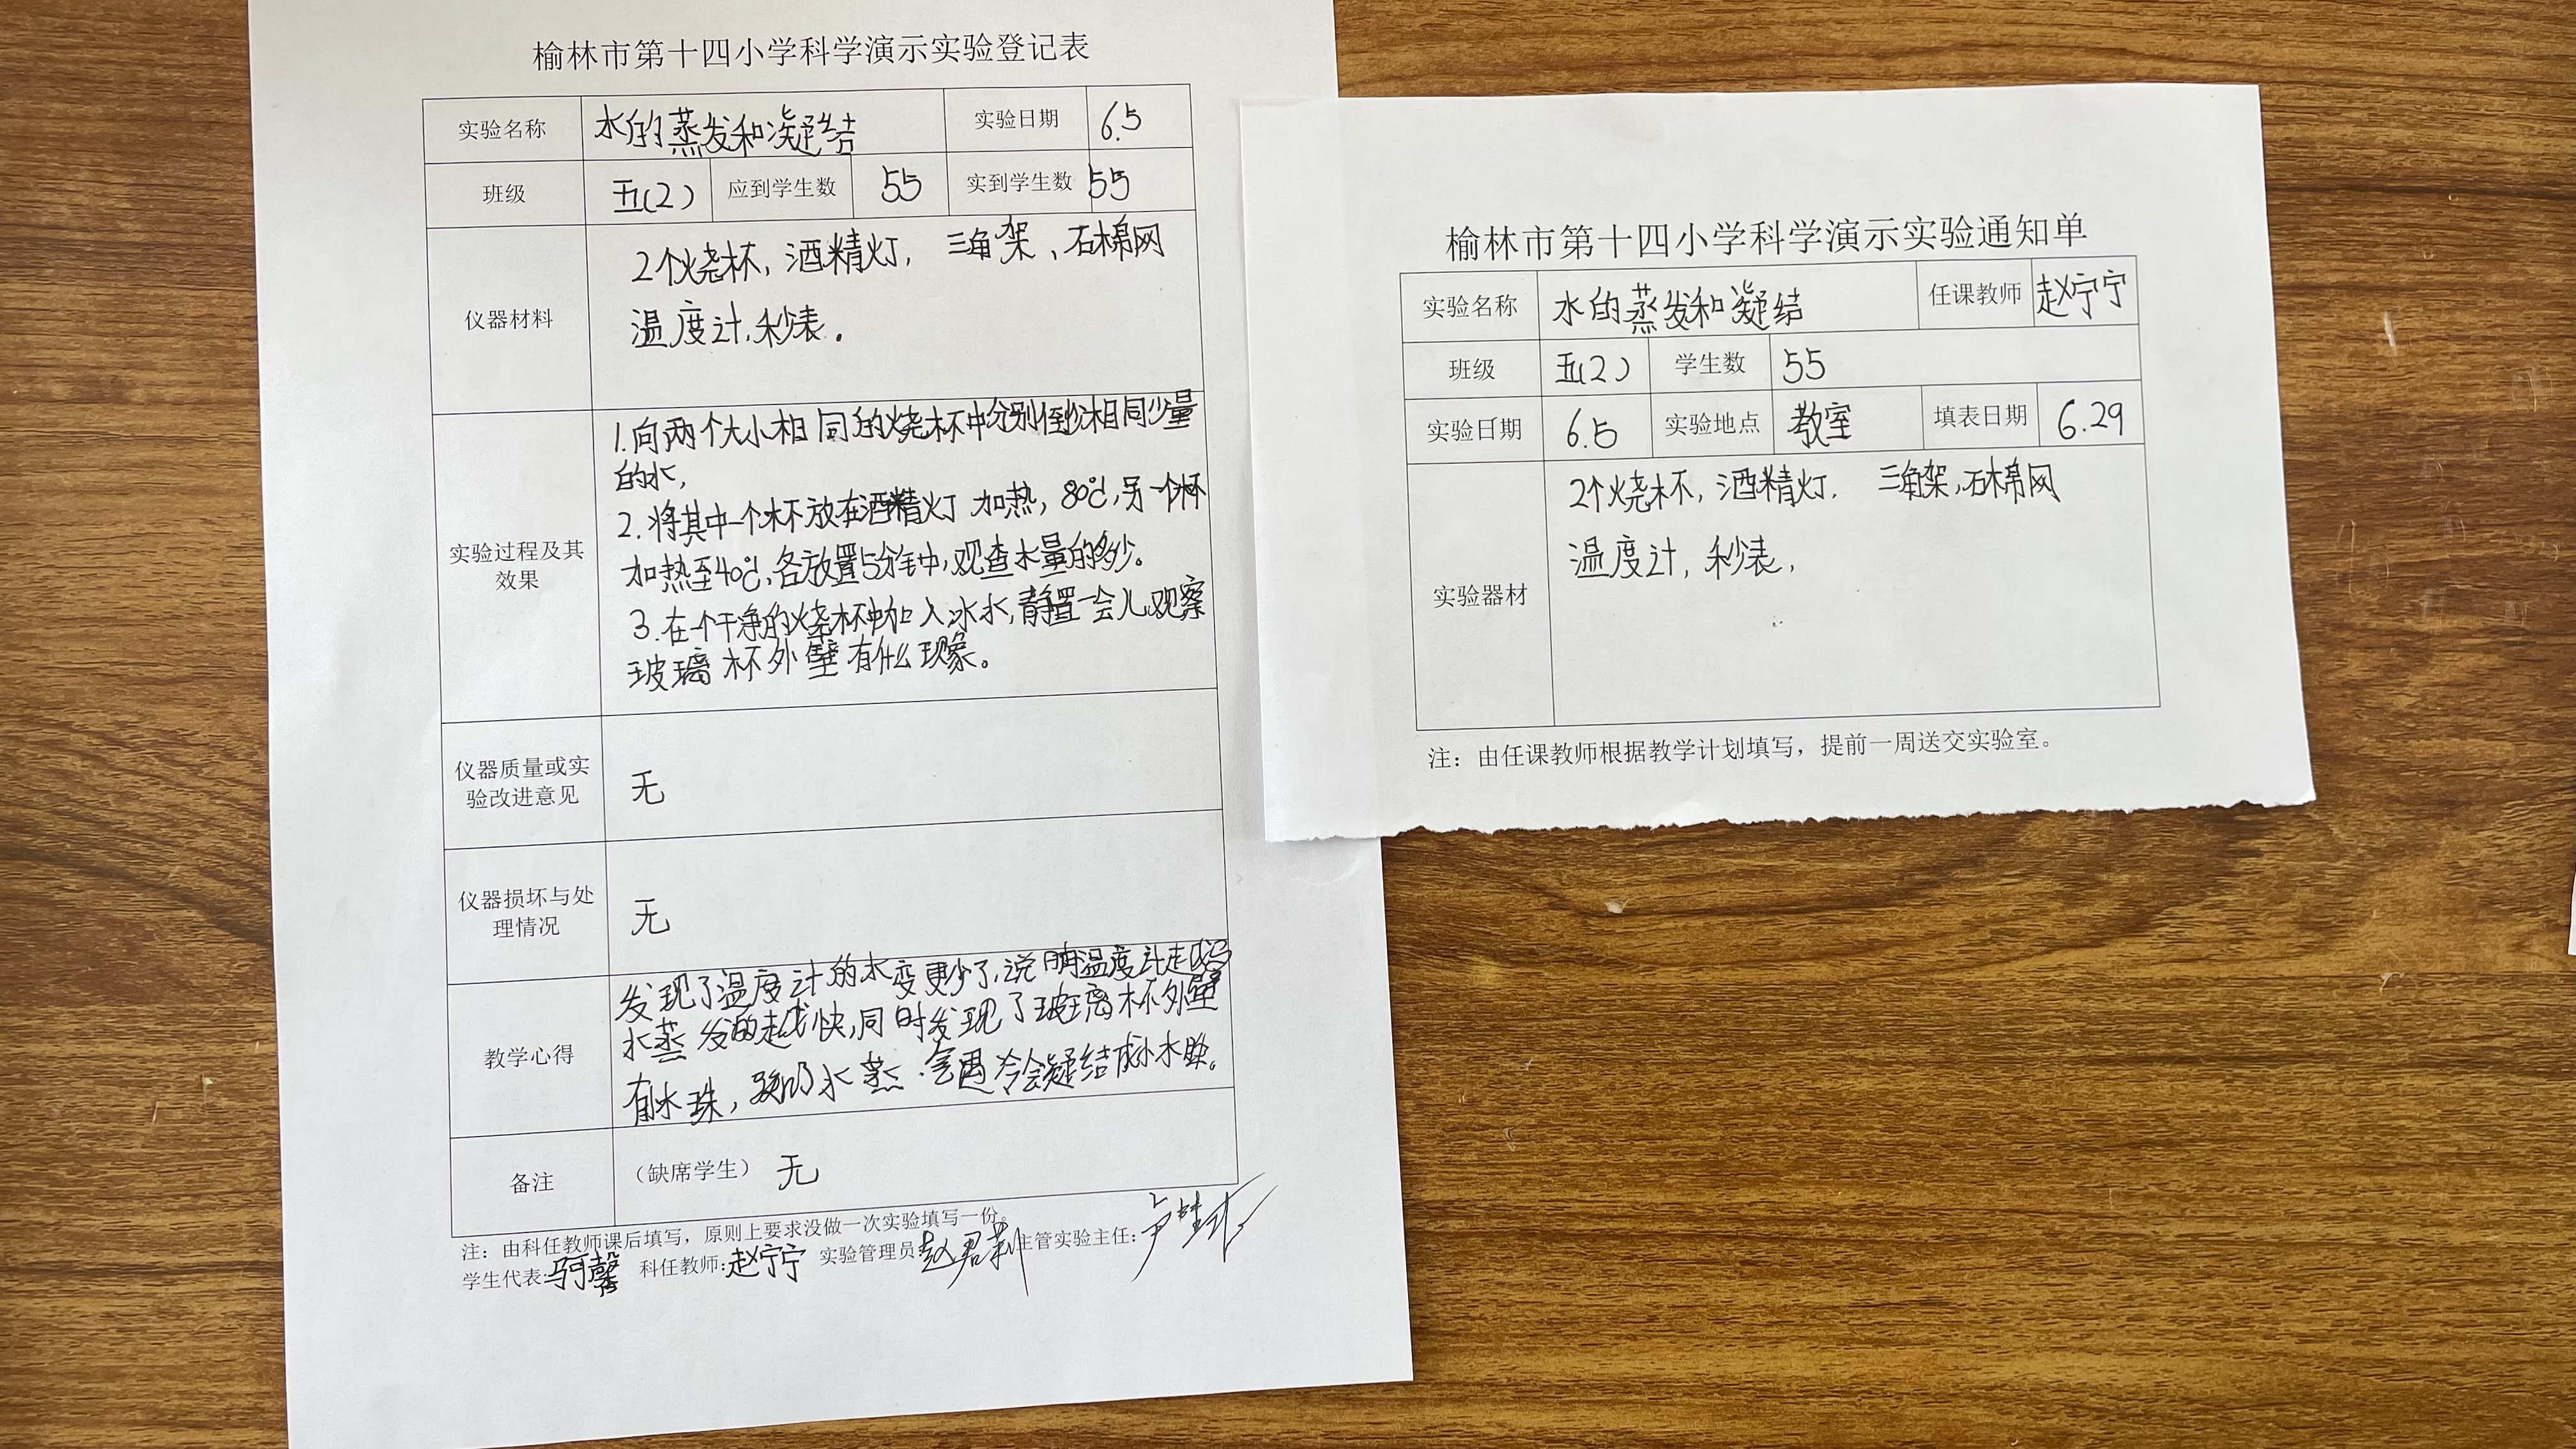 榆林市第十四小学科学演示实验登记表
实验名称 水的蒸发和凝结 实验日期 6.5
班级 五(2) 应到学生数 55 实到学生数 55
仪器材料
2个烧杯, 酒精灯, 三角架、石棉网
温度计, 秒表.
实验过程及其
效果
1.向两个大小相同的烧杯中分别倒少相同少量
的水,
2.将其中一个杯放在酒精灯加热, 80℃, 另一个杯
加热至40℃, 各放置5分钟中, 观查水量的多少。
3.在一个干净的烧杯中加入冰水, 静置一会儿, 观察
玻璃杯外壁有什么现象。
仪器质量或实
验改进意见
无
仪器损坏与处
理情况
无
教学心得
发现了温度计的水变更少了, 说明温度计
水蒸发的越快, 同时发现了玻璃杯外壁
有水珠, 水蒸气遇冷会凝结成小水
备注 (缺席学生) 无
注：由科任教师课后填写，原则上要求没做一次实验填写一份。
学生代表: 科任教师:赵宁宁 实验管理员 赵君莉 主管实验主任:
榆林市第十四小学科学演示实验通知单
实验名称 水的蒸发和凝结 任课教师 赵宁宁
班级 五(2) 学生数 55
实验日期 6.5 实验地点 教室 填表日期 6.29
实验器材
2个烧杯, 酒精灯, 三角架, 石棉网
温度计, 秒表,
注：由任课教师根据教学计划填写，提前一周送交实验室。